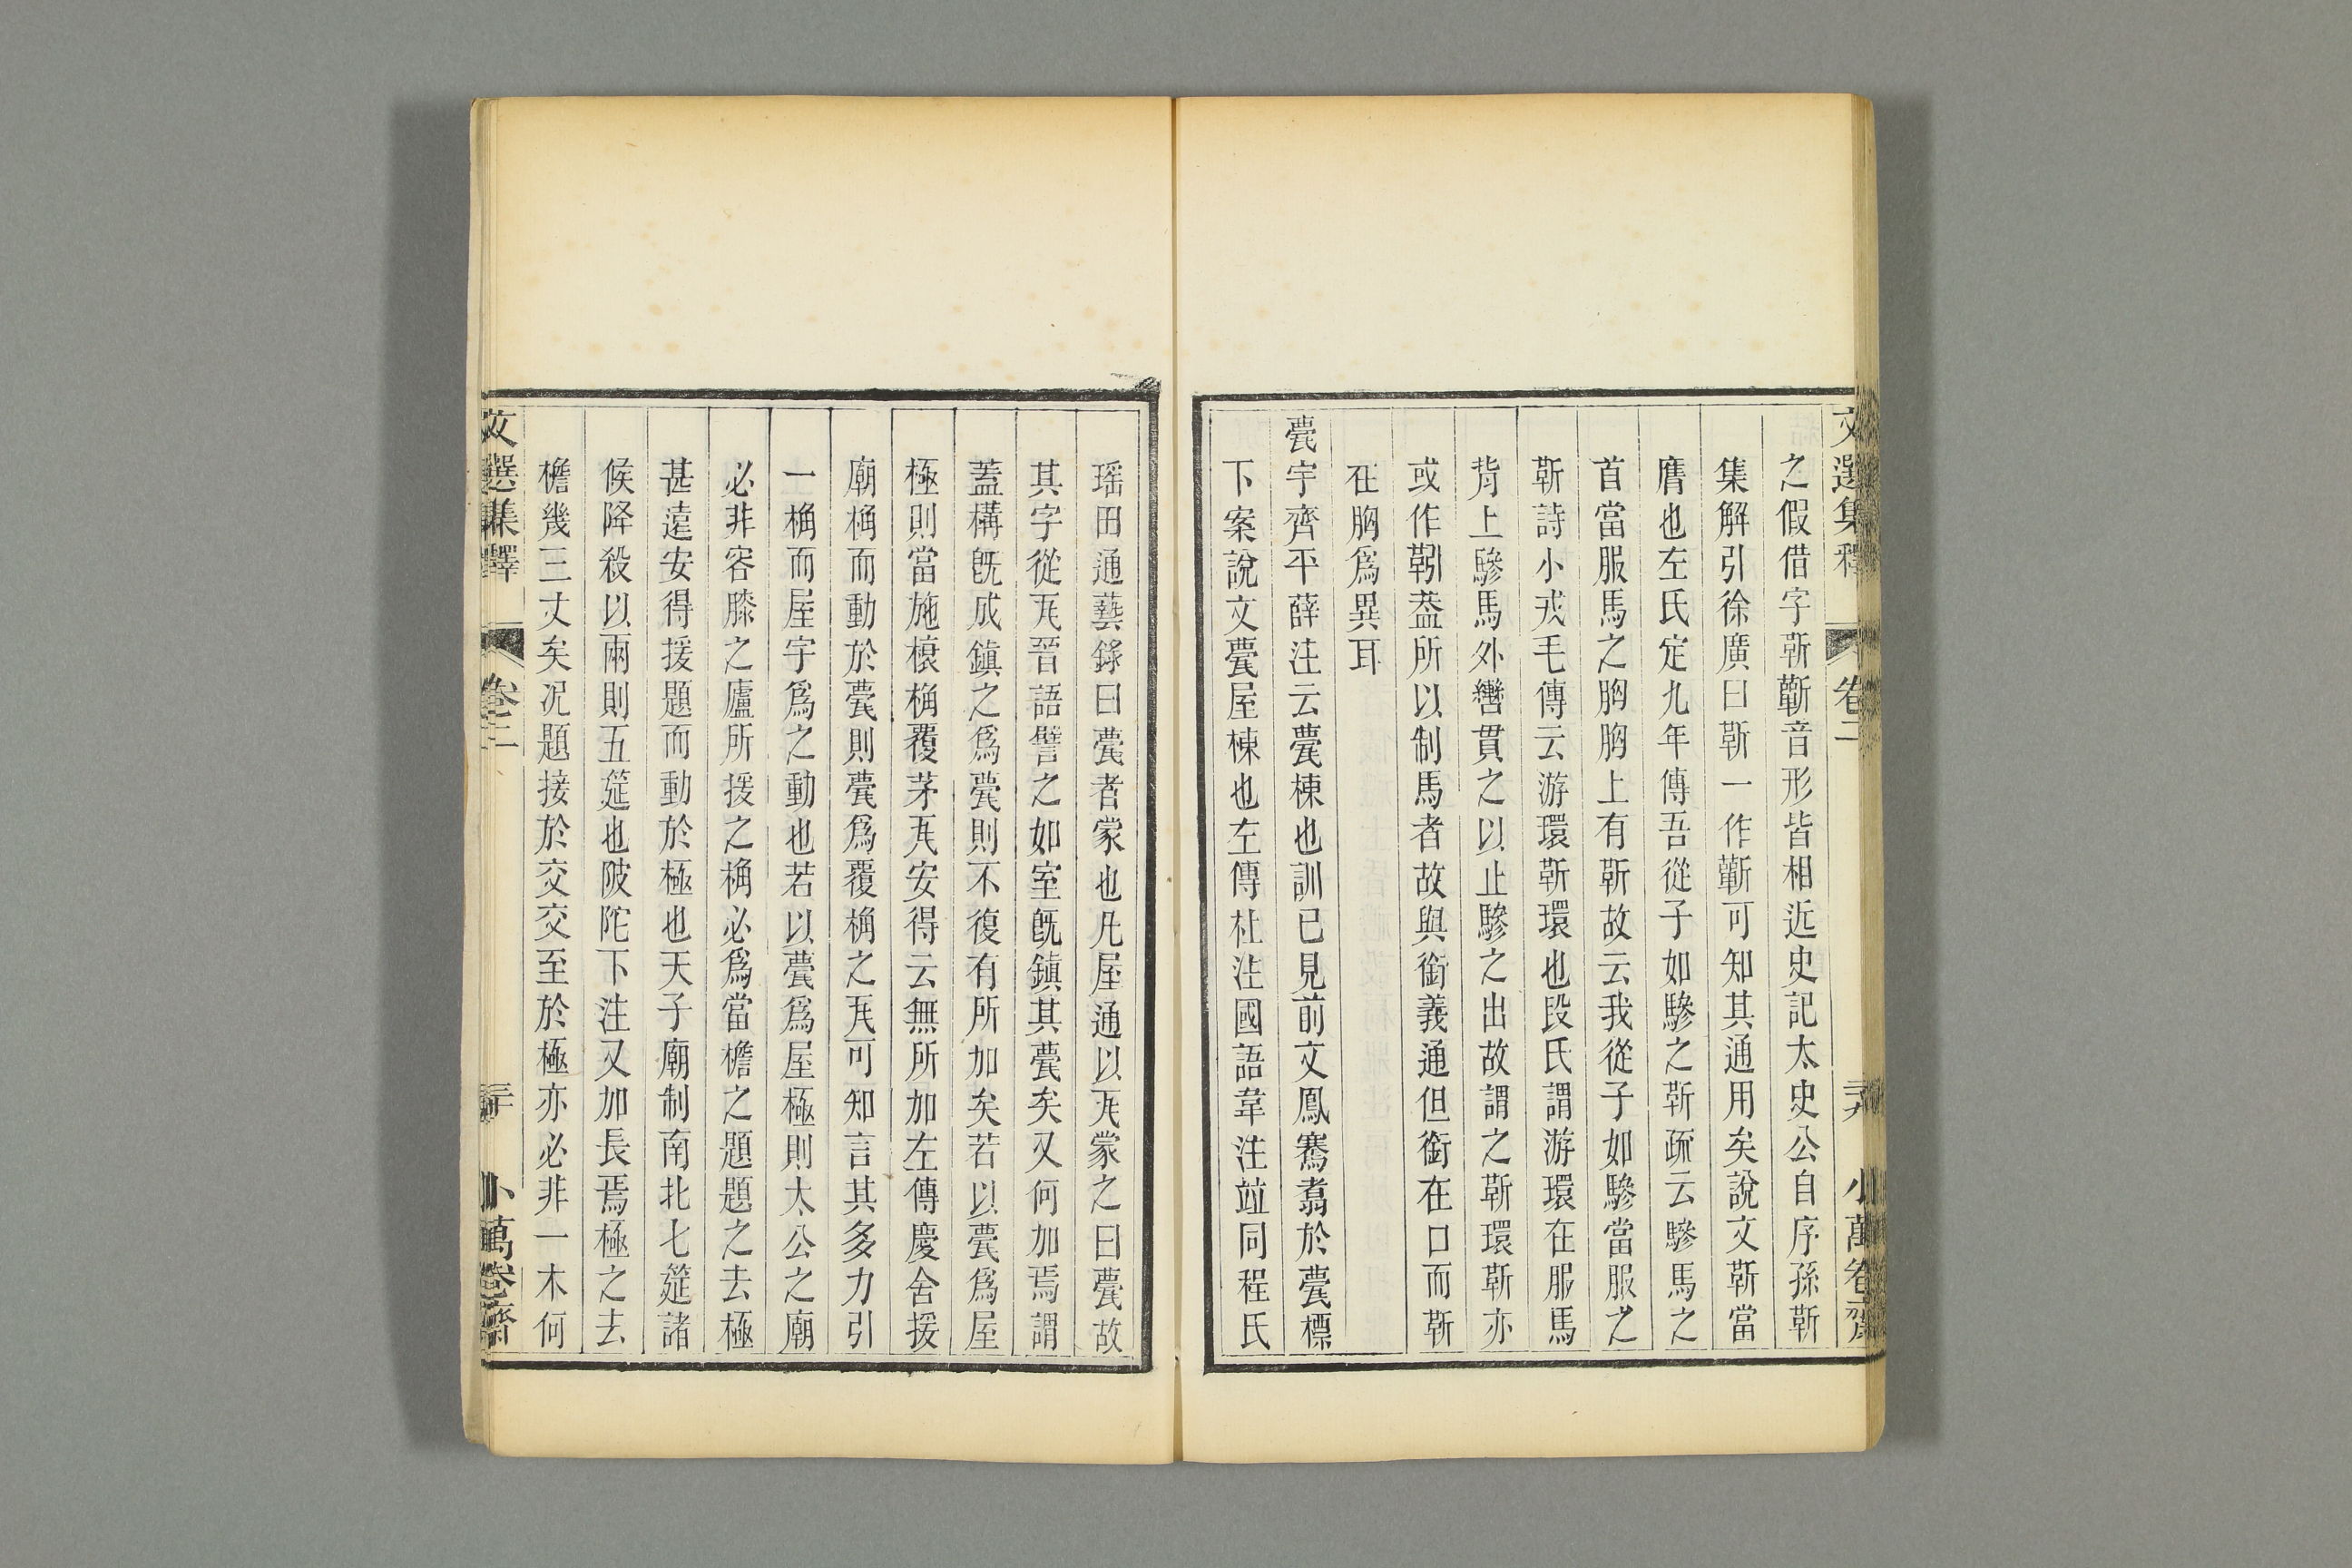 文選集釋 卷二 天 小萬卷齋
之假借字靳蘄音形皆相近史記太史公自序孫靳
集解引徐廣曰靳一作蘄可知其通用矣說文靳當
膺也左氏定九年傳吾從子如驂之靳疏云驂馬之
首當服馬之胸胸上有靳故云我從子如驂當服之
靳詩小戎毛傳云游環靳環也段氏謂游環在服馬
背上驂馬外轡貫之以止驂之出故謂之靳環靳亦
或作靷葢所以制馬者故與銜義通但銜在口而靳
在胸爲異耳
甍宇齊平薛注云甍棟也訓已見前文鳳騫翥於甍標
下案說文甍屋棟也左傳杜注國語韋注竝同程氏
瑶田通藝錄曰甍者蒙也凡屋通以瓦蒙之曰甍故
其字從瓦晉語譬之如室旣鎮其甍矣又何加焉謂
蓋構旣成鎮之爲甍則不復有所加矣若以甍爲屋
極則當施榱桷覆茅瓦安得云無所加左傳慶舍援
廟桷而動於甍則甍爲覆桷之瓦可知言其多力引
一桷而屋宇爲之動也若以甍爲屋極則太公之廟
必非容膝之廬所援之桷必爲當檐之題題之去極
甚遠安得援題而動於極也天子廟制南北七筵諸
候降殺以兩則五筵也陂陀下注又加長焉極之去
檐幾三丈矣况題接於交交至於極亦必非一木何
文選集釋 卷二 小萬卷齋